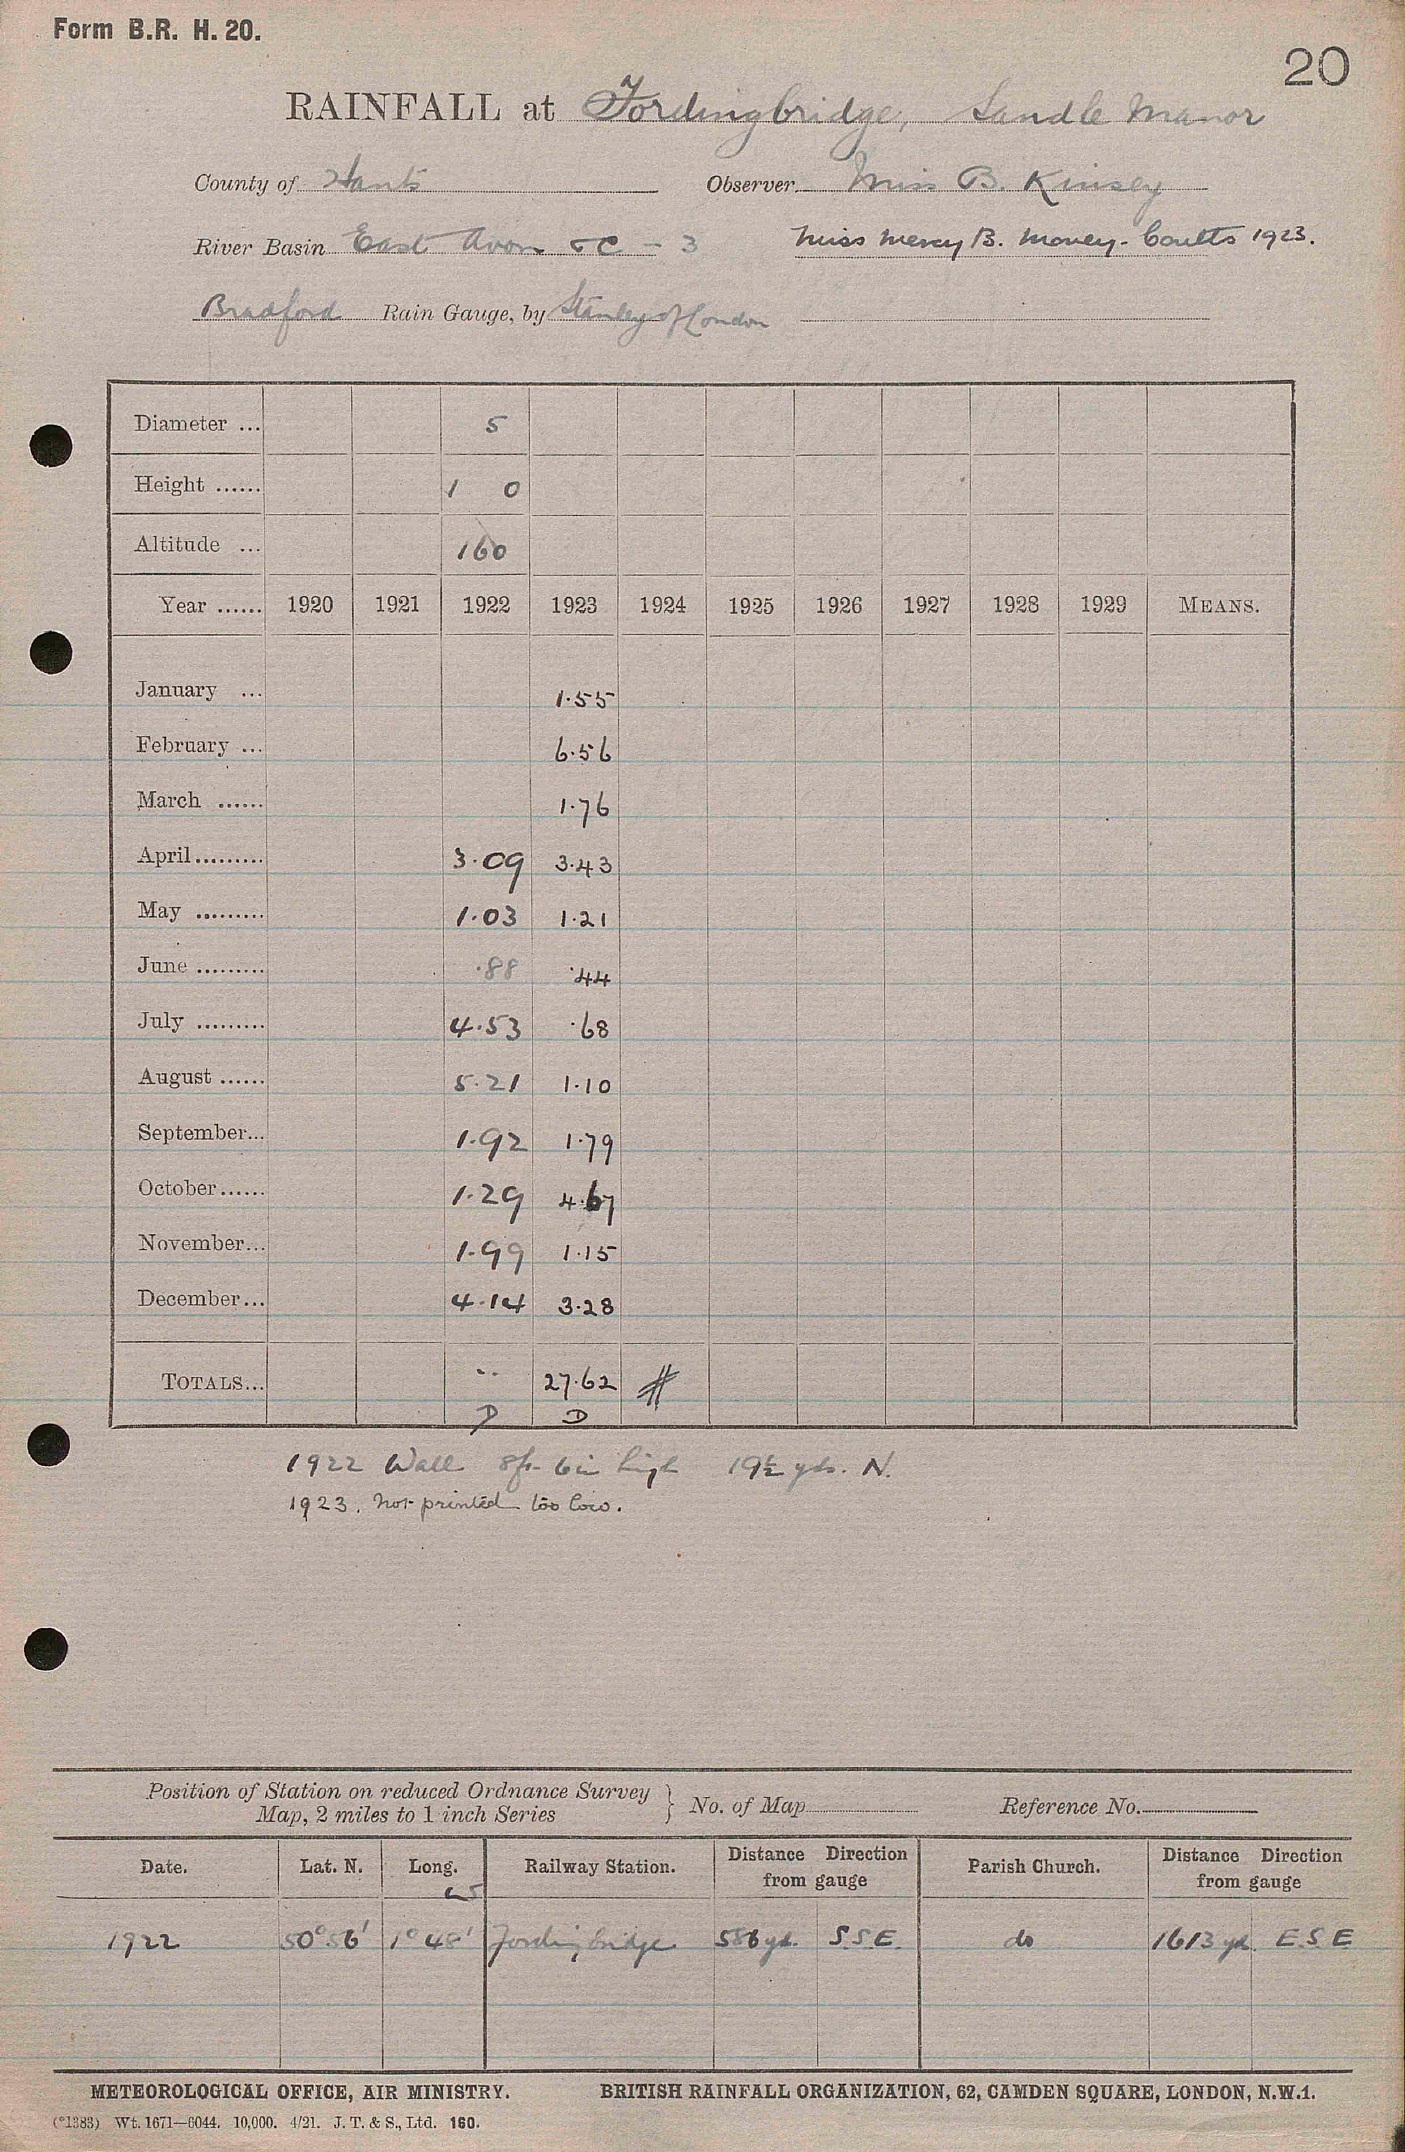 Form B.R. H. 20.
20
RAINFALL at Fordingbridge, Sandle Manor
County of Hants Observer Miss B. Kinsey
River Basin East Avon & C - 3 Miss Mercy B. Money-Coutts 1923.
Bradford Rain Gauge, by Stanley of London
Diameter ... 5
Height ...... 1 0
Altitude ... 160
Year ...... 1920 1921 1922 1923 1924 1925 1926 1927 1928 1929 MEANS.
January ... 1.55
February ... 6.56
March ...... 1.76
April......... 3.09 3.43
May ......... 1.03 1.21
June ......... .88 .44
July ......... 4.53 .68
August ...... 5.21 1.10
September... 1.92 1.79
October...... 1.29 4.67
November... 1.99 1.15
December... 4.14 3.28
TOTALS... .. 27.62 #
D D
1922 Wall 8ft 6in high 19½ yds. N.
1923. Not printed too low.
Position of Station on reduced Ordnance Survey
Map, 2 miles to 1 inch Series } No. of Map Reference No.
Date. Lat. N. Long. W Railway Station. Distance Direction from gauge Parish Church. Distance Direction from gauge
1922 50° 56' 1° 48' Fordingbridge 586 yd. S.S.E. do 1613 yd. E.S.E
METEOROLOGICAL OFFICE, AIR MINISTRY. BRITISH RAINFALL ORGANIZATION, 62, CAMDEN SQUARE, LONDON, N.W.1.
(*1383) Wt. 1671—6044. 10,000. 4/21. J. T. & S., Ltd. 160.